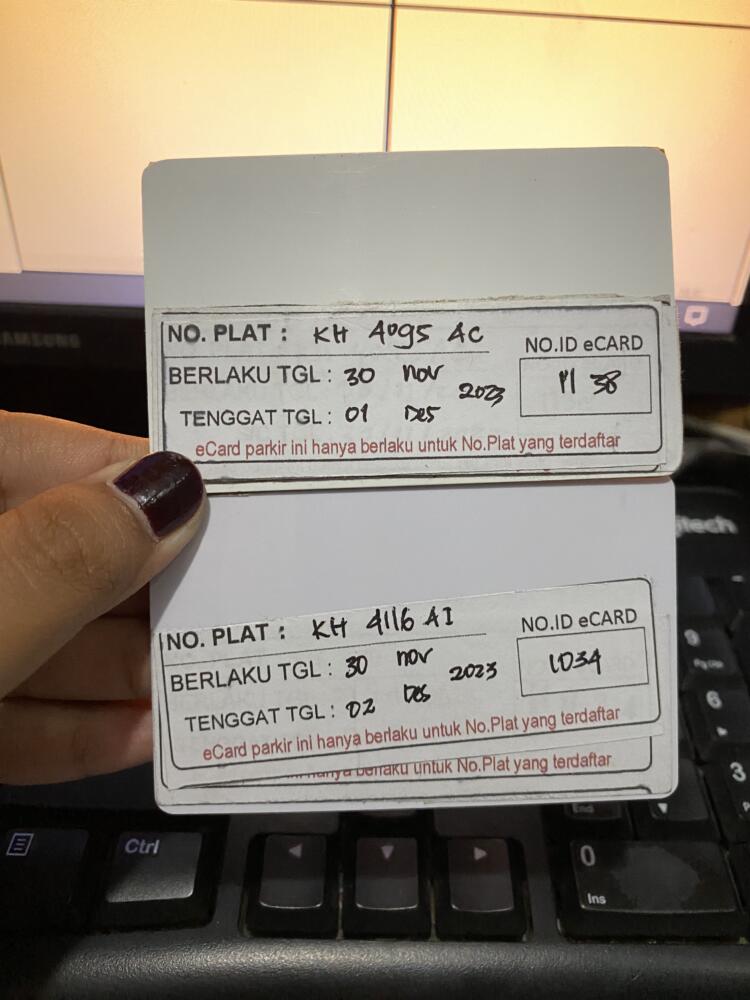 SAMSUNG
NO. PLAT : KH 4095 AC
NO.ID eCARD
BERLAKU TGL : 30 nov 2023
1138
TENGGAT TGL : 01 Des
eCard parkir ini hanya berlaku untuk No.Plat yang terdaftar
NO. PLAT : KH 4116 AI
NO.ID eCARD
BERLAKU TGL : 30 nov 2023
1034
TENGGAT TGL : 02 Des
eCard parkir ini hanya berlaku untuk No.Plat yang terdaftar
hanya berlaku untuk No.Plat yang terdaftar
9
6
3
End
Ctrl
0
Ins